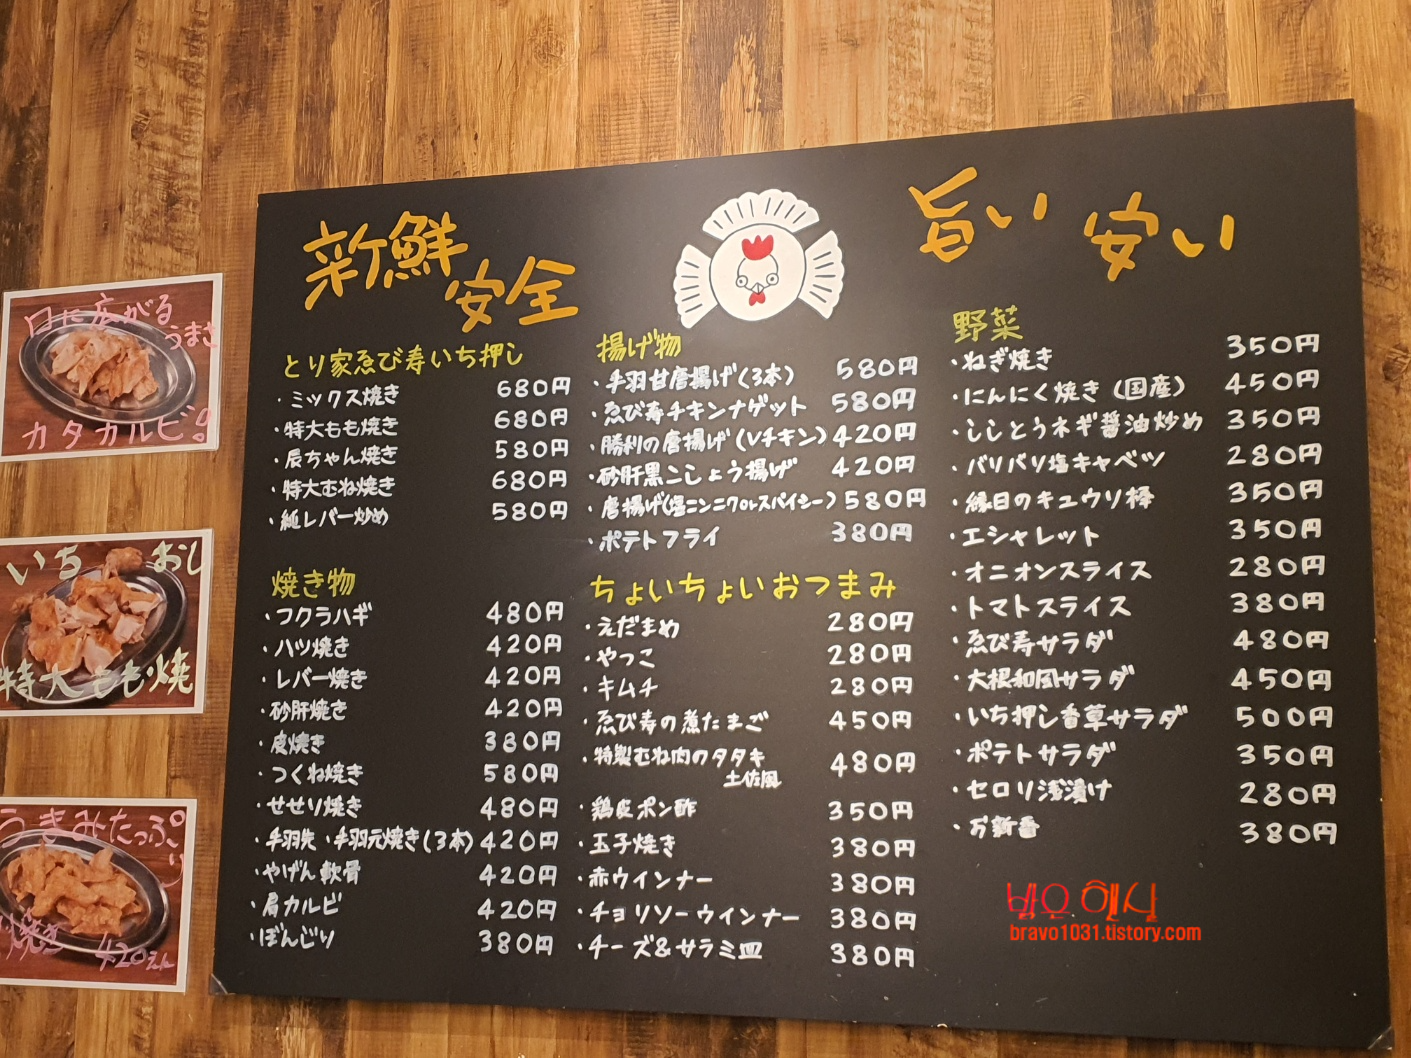 新鮮
安全
旨い 安い
とり家ゑび寿いち押し
・ミックス焼き 680円
・特大もも焼き 680円
・辰ちゃん焼き 580円
・特大むね焼き 680円
・純レバー炒め 580円
焼き物
・フクラハギ 480円
・ハツ焼き 420円
・レバー焼き 420円
・砂肝焼き 420円
・皮焼き 380円
・つくね焼き 580円
・せせり焼き 480円
・手羽先・手羽元焼き(3本) 420円
・やげん軟骨 420円
・肩カルビ 420円
・ぼんじり 380円
揚げ物
・手羽甘唐揚げ(3本) 580円
・ゑび寿チキンナゲット 580円
・勝利の唐揚げ(Vチキン) 420円
・砂肝黒こしょう揚げ 420円
・唐揚げ(塩ニンニクorスパイシー) 580円
・ポテトフライ 380円
ちょいちょいおつまみ
・えだまめ 280円
・やっこ 280円
・キムチ 280円
・ゑび寿の煮たまご 450円
・特製むね肉のタタキ 480円
土佐風
・鶏皮ポン酢 350円
・玉子焼き 380円
・赤ウインナー 380円
・チョリソーウインナー 380円
・チーズ&サラミ皿 380円
野菜
・ねぎ焼き 350円
・にんにく焼き(国産) 450円
・ししとうネギ醤油炒め 350円
・バリバリ塩キャベツ 280円
・縁日のキュウリ棒 350円
・エシャレット 350円
・オニオンスライス 280円
・トマトスライス 380円
・ゑび寿サラダ 480円
・大根和風サラダ 450円
・いち押し香草サラダ 500円
・ポテトサラダ 350円
・セロリ浅漬け 280円
・万新香 380円
口に広がる
うまさ
カタカルビ!
いち おし
特大もも焼
うまみたっぷり
焼き 420えん
bravo1031.tistory.com